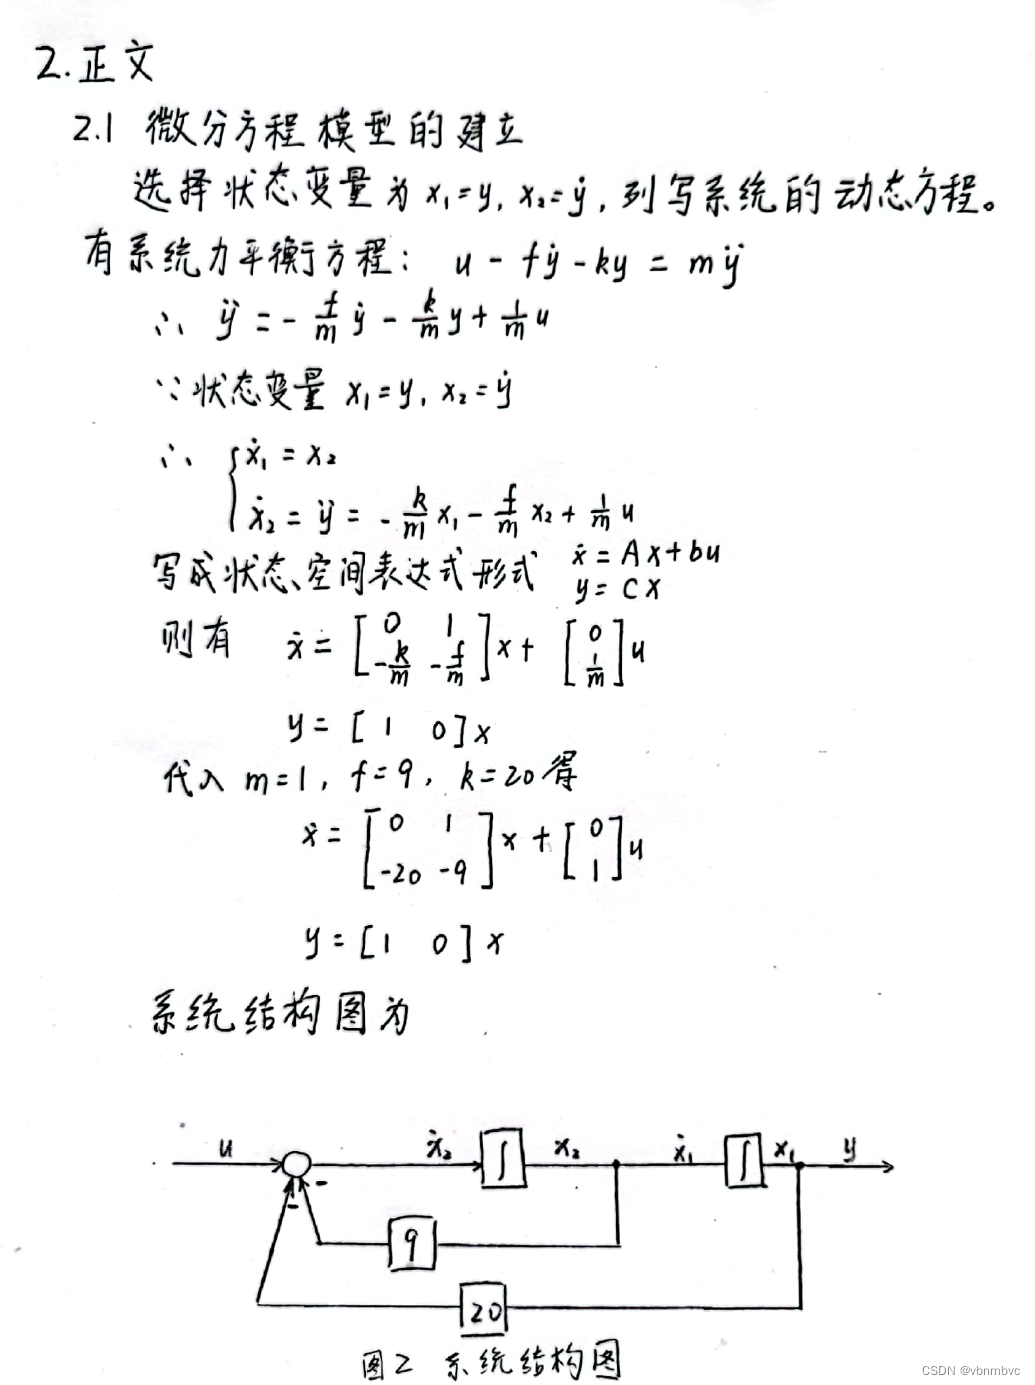 2.正文
2.1 微分方程模型的建立
选择状态变量为 x₁=y, x₂=ẏ, 列写系统的动态方程。
有系统力平衡方程: u - fẏ - ky = mÿ
∴ ÿ = - f/m ẏ - k/m y + 1/m u
∵ 状态变量 x₁=y, x₂=ẏ
∴ { ẋ₁ = x₂
ẋ₂ = ÿ = - k/m x₁ - f/m x₂ + 1/m u
写成状态空间表达式形式 ẋ = Ax + bu
y = Cx
则有 ẋ = [0 1; -k/m -f/m] x + [0; 1/m] u
y = [1 0] x
代入 m=1, f=9, k=20 得
ẋ = [0 1; -20 -9] x + [0; 1] u
y = [1 0] x
系统结构图为
u ẋ₂ ∫ x₂ ẋ₁ ∫ x₁ y
- -
9
20
图2 系统结构图
CSDN @vbnmbvc